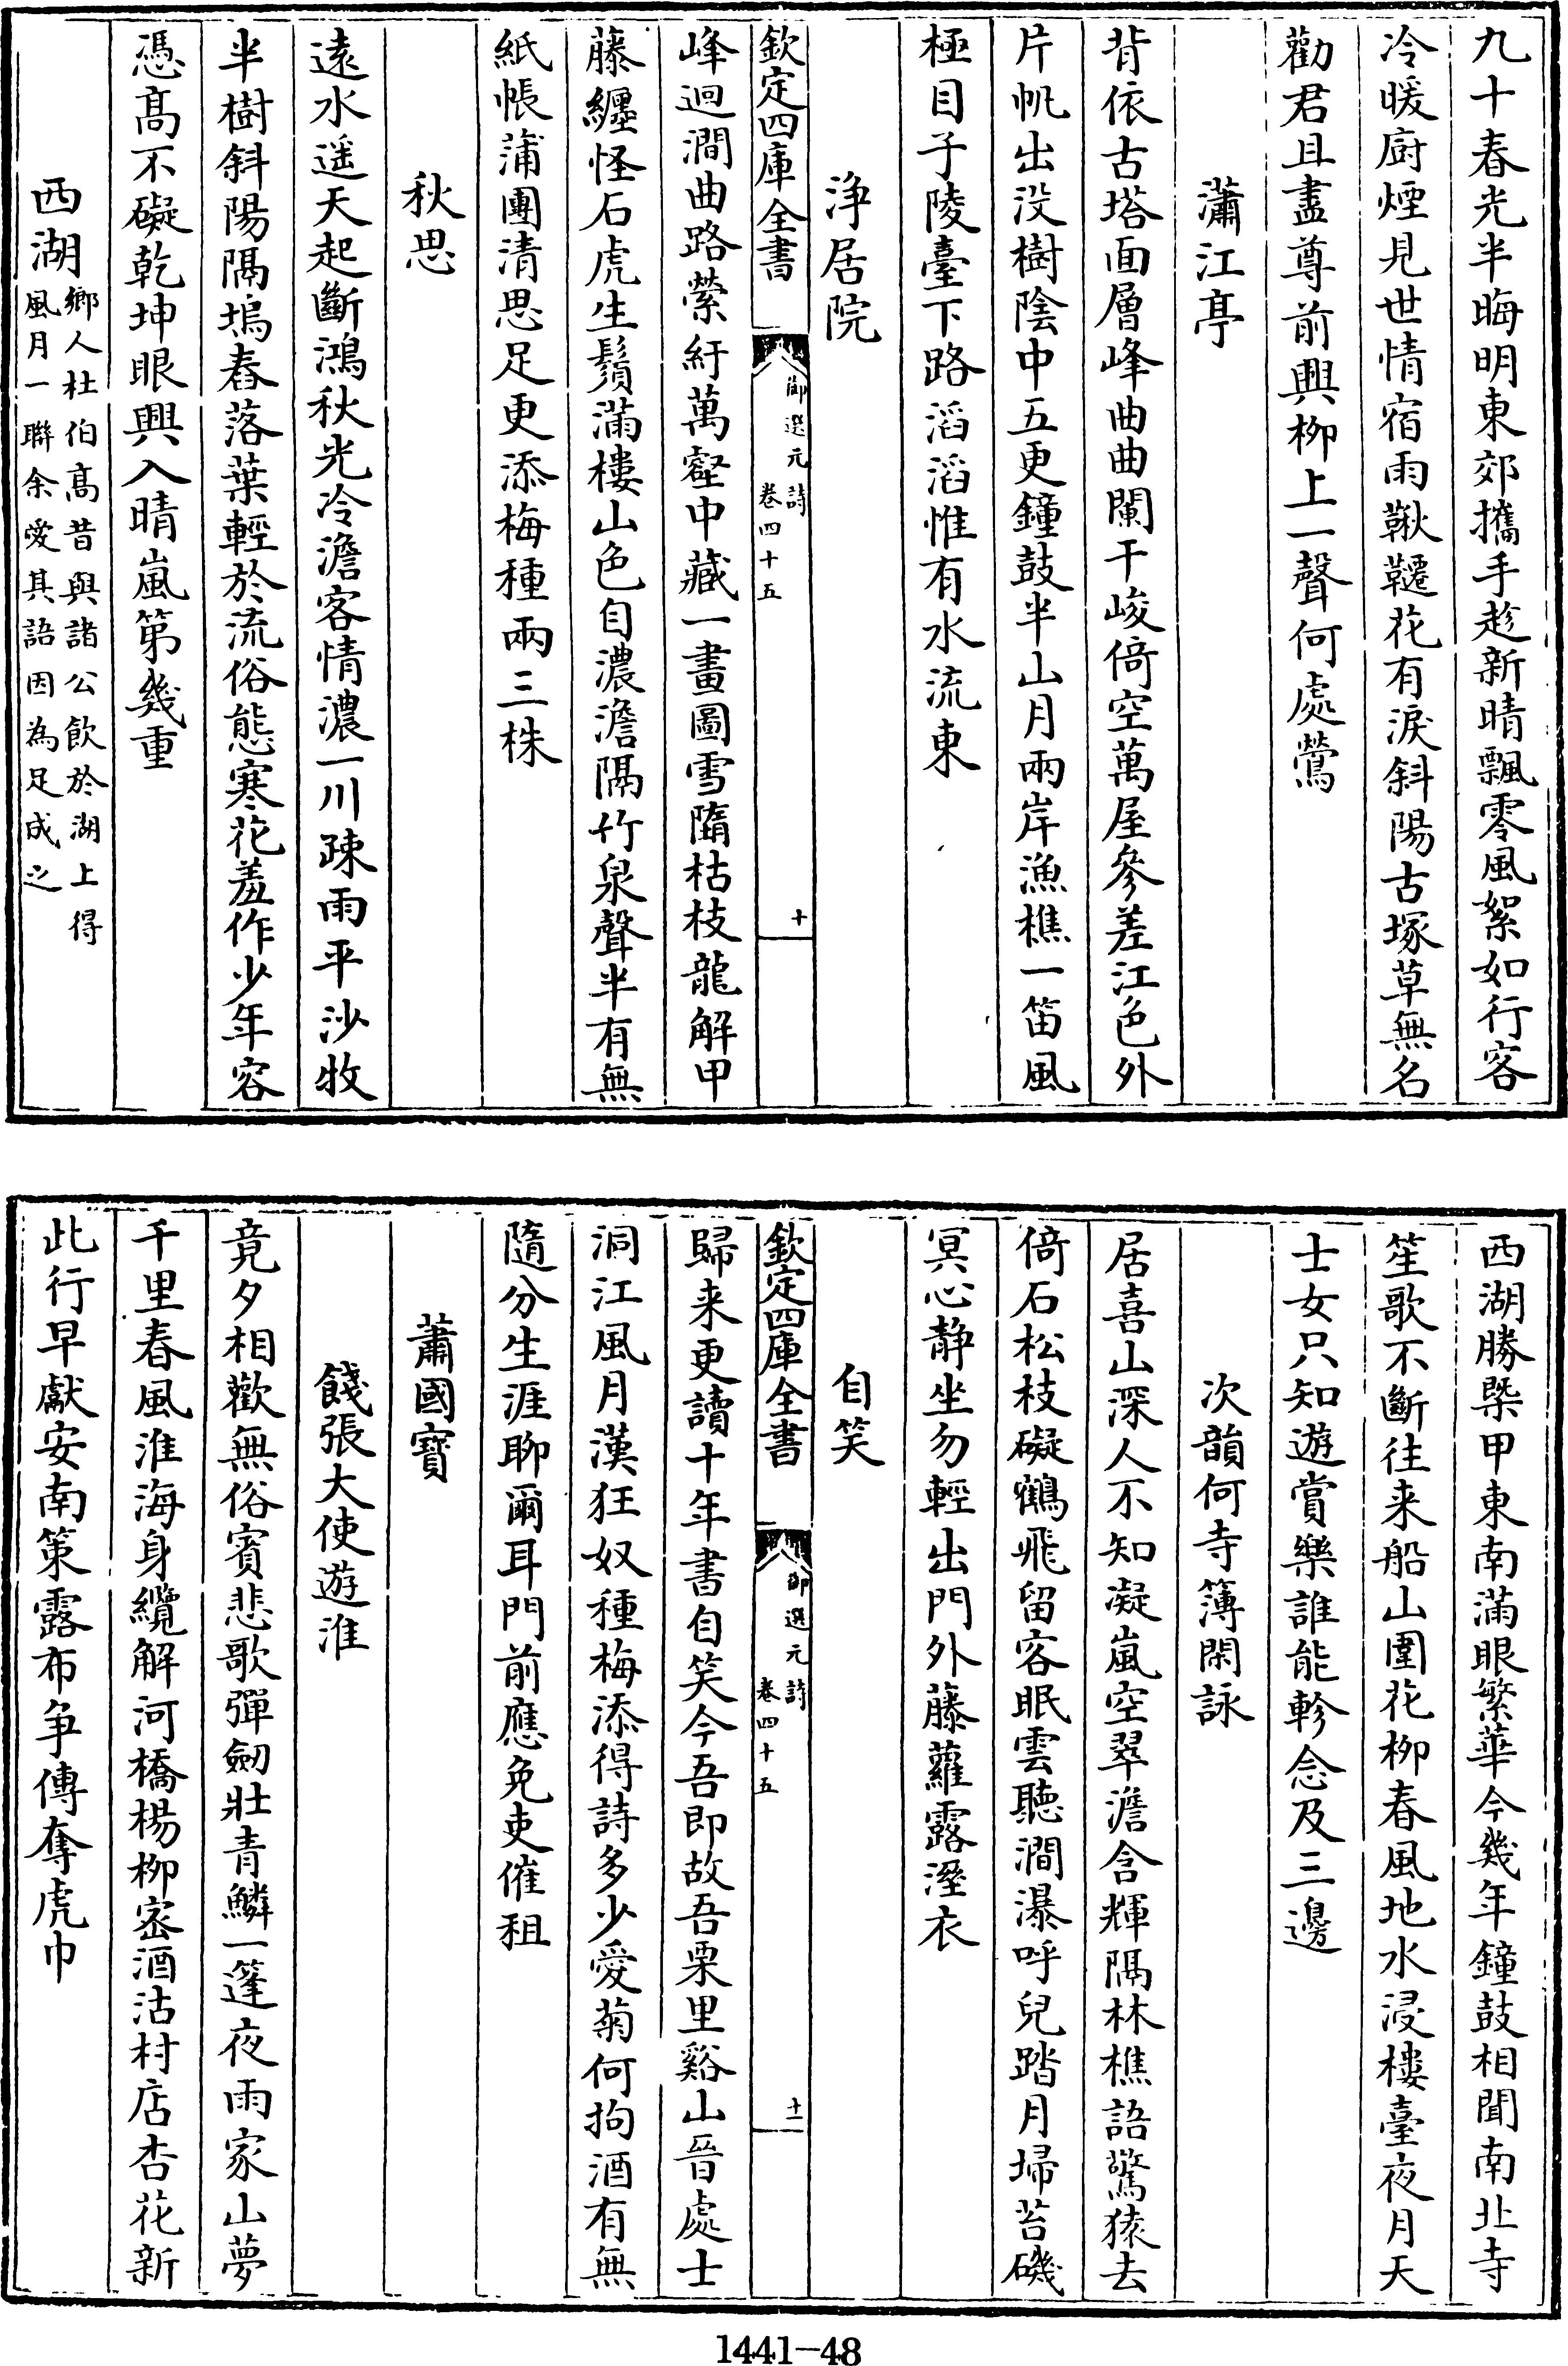 九十春光半晦明東郊攜手趁新晴飄零風絮如行客
冷暖廚煙見世情宿雨鞦韆花有淚斜陽古塚草無名
勸君且盡尊前興柳上一聲何處鶯
瀟江亭
背依古塔面層峰曲曲闌干峻倚空萬屋參差江色外
片帆出没樹陰中五更鐘鼓半山月兩岸漁樵一笛風
極目子陵臺下路滔滔惟有水流東
淨居院
欽定四庫全書
御選元詩
卷四十五
十
峰迴澗曲路縈紆萬壑中藏一畫圖雪隨枯枝龍解甲
藤纏怪石虎生鬚滿樓山色自濃澹隔竹泉聲半有無
紙帳蒲團清思足更添梅種兩三株
秋思
遠水遥天起斷鴻秋光冷澹客情濃一川疎雨平沙牧
半樹斜陽隔塢舂落葉輕於流俗態寒花羞作少年容
憑高不礙乾坤眼興入晴嵐第幾重
西湖
鄉人杜伯高昔與諸公飲於湖上得
風月一聯余愛其語因為足成之
西湖勝槩甲東南滿眼繁華今幾年鐘鼓相聞南北寺
笙歌不斷往来船山圍花柳春風地水浸樓臺夜月天
士女只知遊賞樂誰能軫念及三邊
次韻何寺簿閑詠
居喜山深人不知凝嵐空翠澹含輝隔林樵語驚猿去
倚石松枝礙鶴飛留客眠雲聽澗瀑呼兒踏月埽苔磯
冥心静坐勿輕出門外藤蘿露溼衣
自笑
欽定四庫全書
御選元詩
卷四十五
十一
歸来更讀十年書自笑今吾即故吾栗里谿山晉處士
洞江風月漢狂奴種梅添得詩多少愛菊何拘酒有無
隨分生涯聊爾耳門前應免吏催租
蕭國寶
餞張大使遊淮
竟夕相歡無俗賓悲歌彈劒壯青鱗一篷夜雨家山夢
千里春風淮海身纜解河橋楊柳密酒沽村店杏花新
此行早獻安南策露布爭傳奪虎巾
1441-48